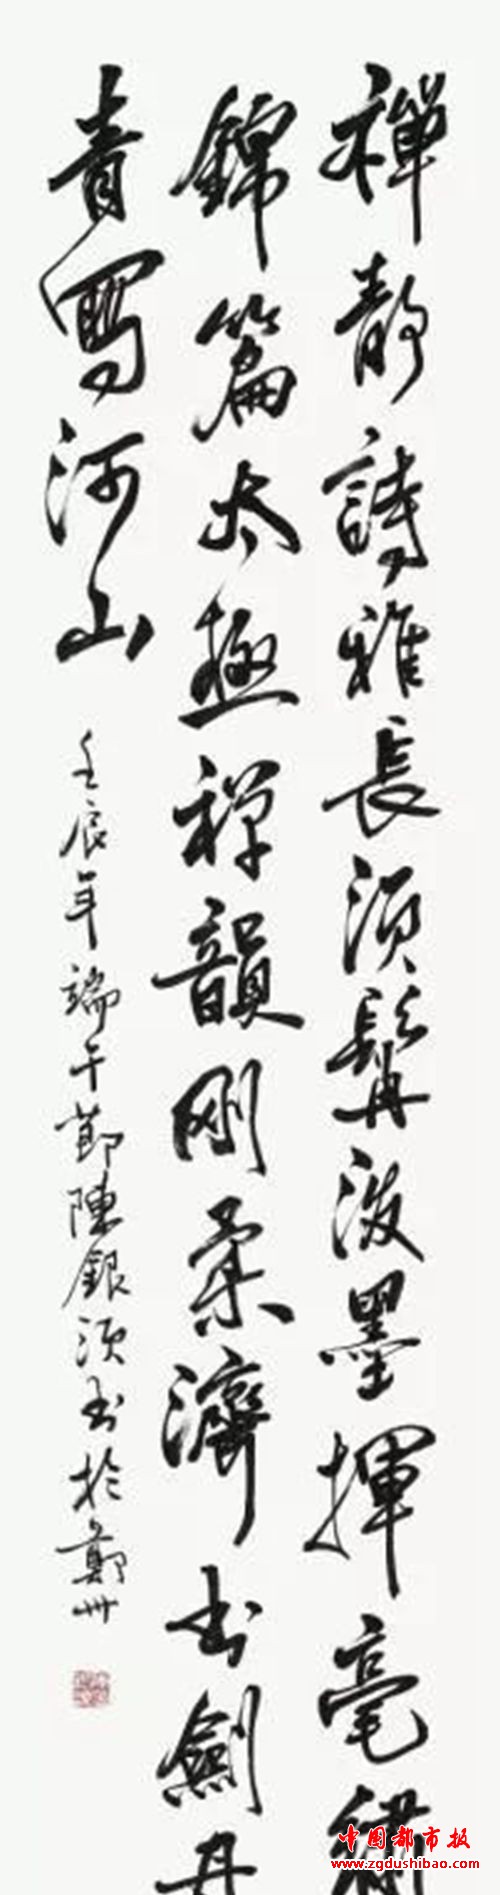 禪静詩雅長須髯潑墨揮毫繡
錦篇太極禪韻剛柔濟書劍丹
青寫河山
壬辰年端午節陳銀須書於鄭州
中国都市报
www.zgdushibao.com